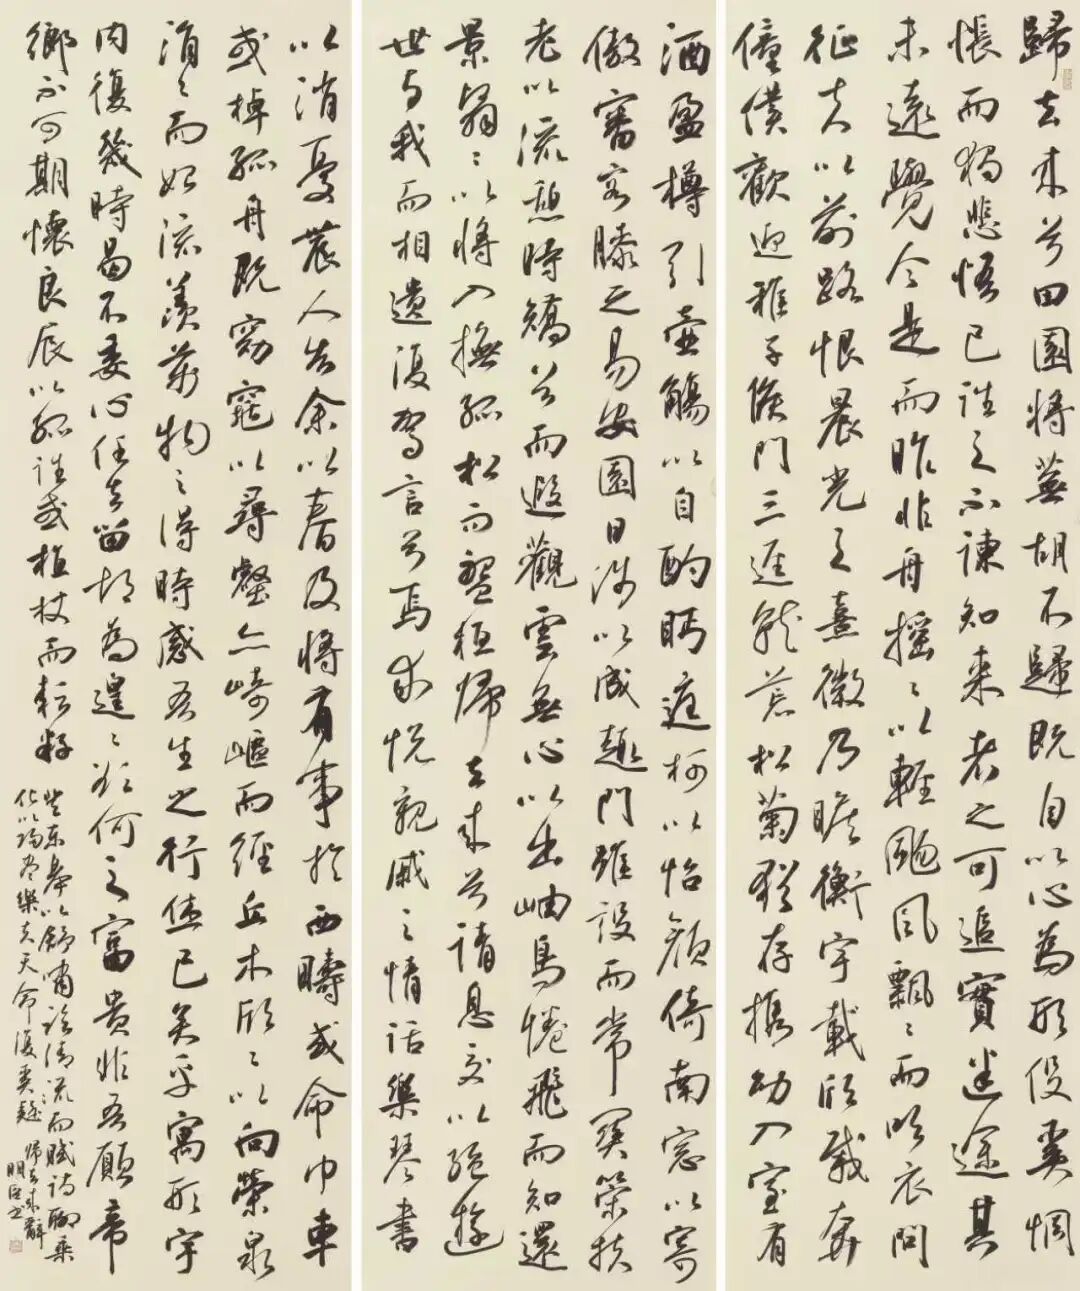 歸去来兮田園将蕪胡不歸既自以心為形役奚惆
悵而獨悲悟已往之不諫知来者之可追實迷途其
未遠覺今是而昨非舟搖〻以輕颺風飄〻而吹衣問
征夫以前路恨晨光之熹微乃瞻衡宇載欣載奔
僮僕歡迎稚子候門三逕就荒松菊猶存攜幼入室有
酒盈樽引壺觴以自酌眄庭柯以怡顏倚南窗以寄
傲審容膝之易安園日涉以成趣門雖設而常關策扶
老以流憩時矯首而遐觀雲無心以出岫鳥倦飛而知還
景翳〻以將入撫孤松而盤桓歸去来兮請息交以絕遊
世与我而相遺復駕言兮焉求悅親戚之情話樂琴書
以消憂農人告余以春及將有事於西疇或命巾車
或棹孤舟既窈窕以尋壑亦崎嶇而經丘木欣〻以向榮泉
涓〻而始流羨萬物之得時感吾生之行休已矣乎寓形宇
内復幾時曷不委心任去留胡為遑〻欲何之富貴非吾願帝
鄉不可期懷良辰以孤往或植杖而耘耔
登東皋以舒嘯臨清流而賦詩聊乘
化以歸盡樂夫天命復奚疑 歸去来辭